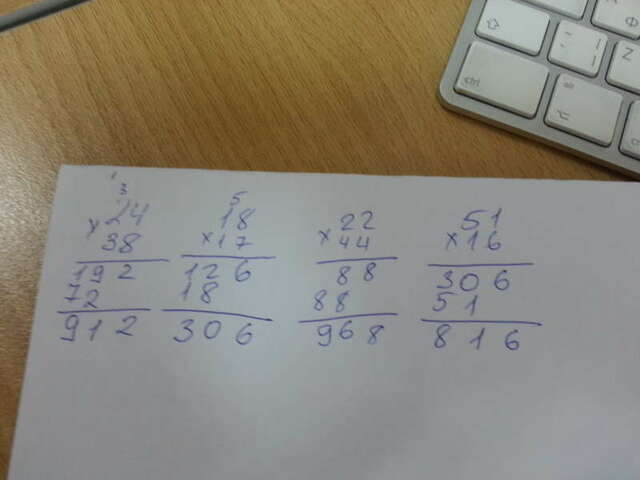 1
3 5
24 18 22 51
×38 ×17 ×44 ×16
192 126 88 306
72 18 88 51
912 306 968 816
ctrl
⇧
Z
Ф